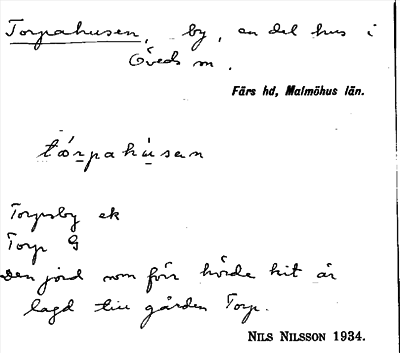 Torpahusen, by, en del hus i
Öveds sn.
Färs hd, Malmöhus län.
tórpahùsen
Torpsby ek
Torp G
Den jord som förr hörde hit är
lagd till gården Torp.
NILS NILSSON 1934.